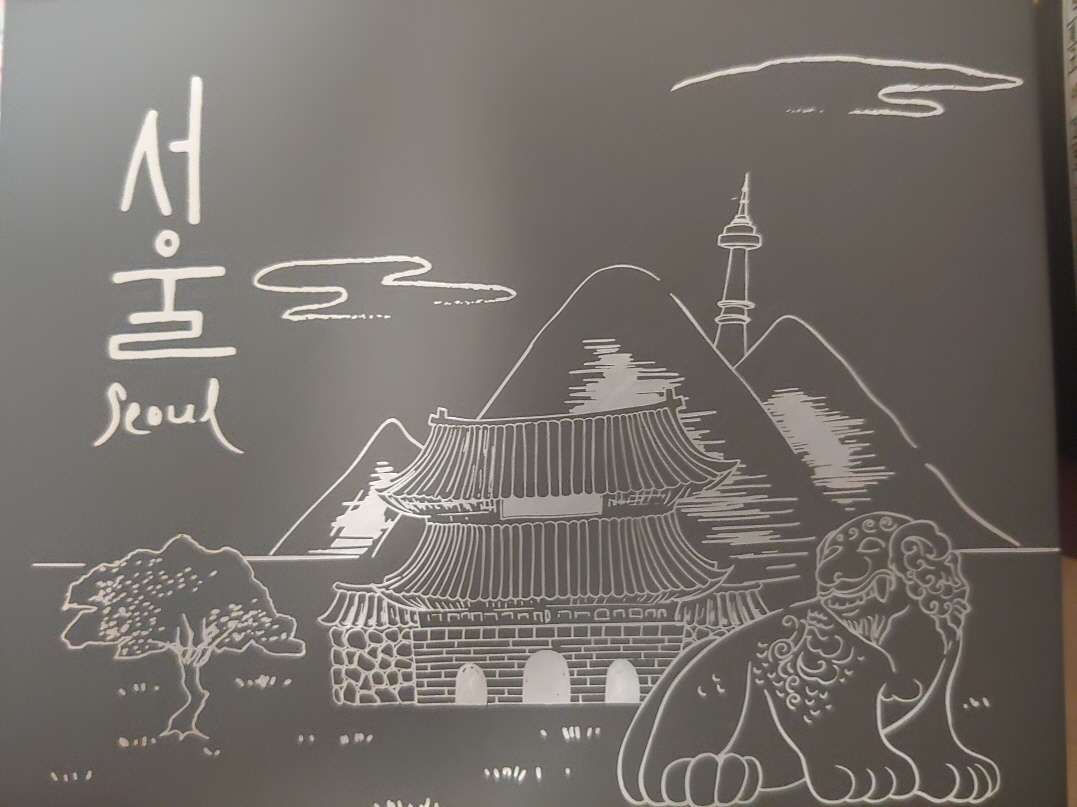 서울
Seoul